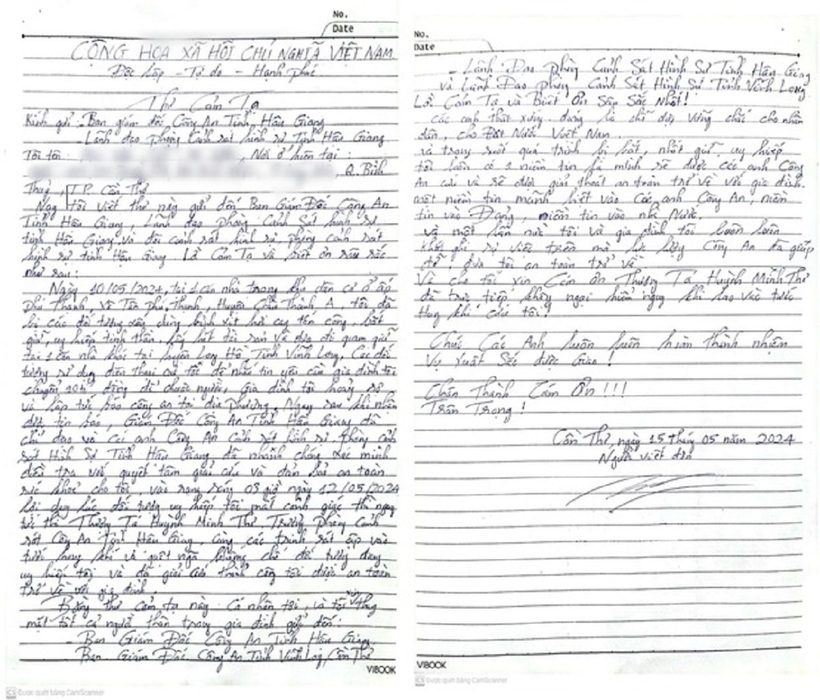 No.
Date
CỘNG HÒA XÃ HỘI CHỦ NGHĨA VIỆT NAM
Độc lập - Tự do - Hạnh phúc
Thư Cảm Tạ
Kính gửi: - Ban giám đốc Công An Tỉnh Hậu Giang
- Lãnh đạo phòng Cảnh sát hình sự Tỉnh Hậu Giang
Tôi tên : , Nơi ở hiện tại :
Q. Bình
Thủy, TP. Cần Thơ
Nay tôi viết thư này gửi đến Ban Giám Đốc Công An
Tỉnh Hậu Giang, Lãnh đạo phòng Cảnh Sát hình sự
tỉnh Hậu Giang và đội cảnh sát hình sự phòng cảnh sát
hình sự tỉnh Hậu Giang. Lời Cảm Tạ và biết ơn sâu sắc
như sau:
Ngày 10/05/2024, tại 1 căn nhà trong khu dân cư ở ấp
Phú Thạnh, xã Tân Phú Thạnh, Huyện Châu Thành A, tôi đã
bị các đối tượng xấu dùng bình xịt hơi cay tấn công, bắt
giữ, uy hiếp tinh thần, lấy hết tài sản và đưa đi giam giữ
tại 1 căn nhà khác tại huyện Long Hồ Tỉnh Vĩnh Long. Các đối
tượng sử dụng điện thoại của tôi để nhắn tin yêu cầu gia đình tôi
chuyển 10 tỷ đồng để chuộc người. Gia đình tôi hoảng sợ
và lập tức báo công an tại địa phương. Ngay sau khi nhận
được tin báo, Giám Đốc Công An Tỉnh Hậu Giang đã
chỉ đạo và các anh Công An Cảnh sát hình sự phòng cảnh
sát Hình Sự Tỉnh Hậu Giang đã nhanh chóng xác minh
điều tra với quyết tâm giải cứu và đảm bảo an toàn
sức khỏe cho tôi, vào rạng sáng 03 giờ ngày 12/05/2024
lợi dụng lúc đối tượng uy hiếp tôi mất cảnh giác thì ngay
tức thì Thượng Tá Huỳnh Minh Thư Trưởng phòng cảnh
sát Công An Tỉnh Hậu Giang, cùng các trinh sát ập vào
tước hung khí và quật ngã khống chế đối tượng đang
uy hiếp tôi và đã giải cứu thành công tôi được an toàn
trở về với gia đình.
Bằng thư cảm tạ này Cá nhân tôi, và tôi thay
mặt tất cả người thân trong gia đình gửi đến:
- Ban Giám Đốc Công An Tỉnh Hậu Giang
Ban Giám Đốc Công An Tỉnh Vĩnh Long, Cần Thơ
VIBOOK
Được quét bằng CamScanner
No.
Date
- Lãnh Đạo phòng Cảnh Sát Hình Sự Tỉnh Hậu Giang
và Lãnh Đạo phòng Cảnh Sát Hình Sự Tỉnh Vĩnh Long
Lời Cảm Tạ và Biết Ơn Sâu Sắc Nhất!
các anh thật xứng đáng là chỗ dựa vững chắc cho nhân
dân, cho Đất Nước Việt Nam.
và trong suốt quá trình bị bắt, nhốt giữ, uy hiếp
tôi luôn có 1 niềm tin là mình sẽ được các anh Công
An cứu và sẽ được giải thoát an toàn trở về với gia đình.
một niềm tin mãnh liệt vào các anh Công An, niềm
tin vào Đảng, niềm tin vào nhà Nước.
và một lần nữa tôi và gia đình tôi luôn luôn
khắc ghi sự việc trên mà lực lượng Công An đã giúp
đỡ, đưa tôi an toàn trở về.
Và cho tôi xin Cảm ơn Thượng Tá Huỳnh Minh Thư
đã trực tiếp không ngại hiểm nguy khi lao vào tước
Hung khí cứu tôi!
Chúc Các Anh luôn luôn hoàn thành nhiệm
Vụ Xuất Sắc được Giao!
Chân Thành Cảm Ơn!!!
Trân Trọng!
Cần Thơ, ngày 15 tháng 05 năm 2024
Người viết đơn
VIBOOK
Được quét bằng CamScanner